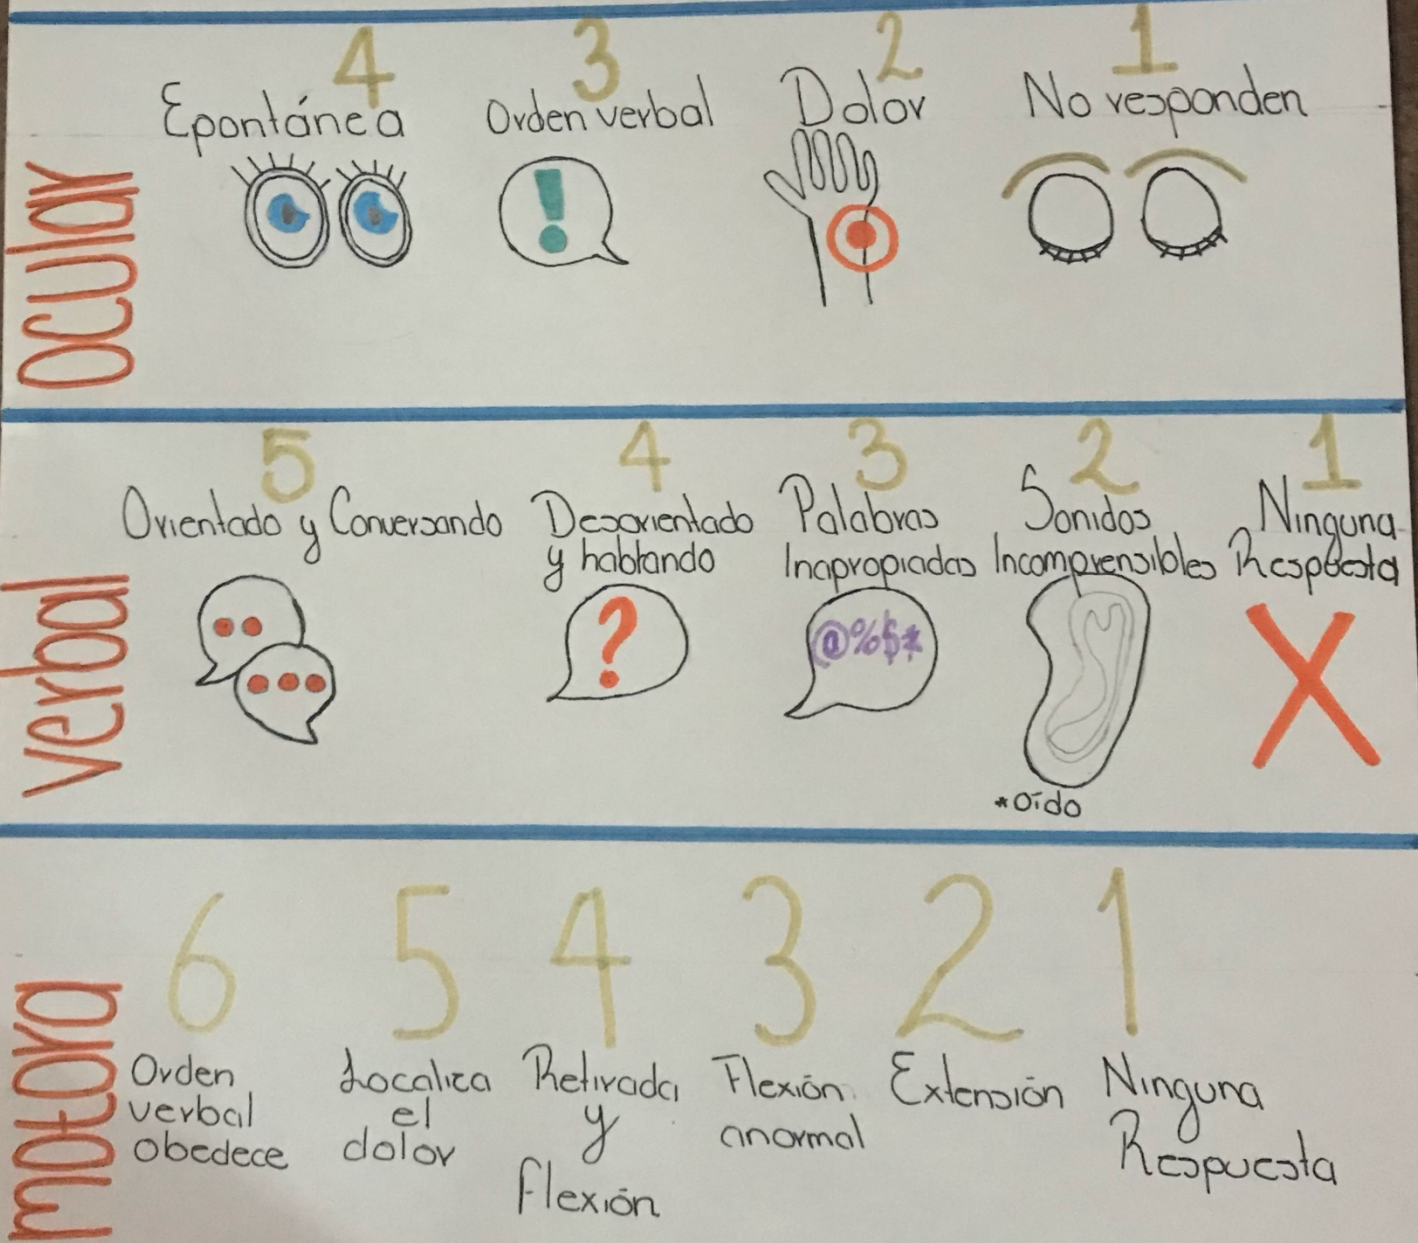 ocular
4 3 2 1
Epontánea Orden verbal Dolor No responden
!
verbal
5 4 3 2 1
Orientado y Conversando
Desorientado
y hablando
Palabras
Inapropiadas
Sonidos
Incomprensibles
Ninguna
Respuesta
?
@%$*
X
*oído
motora
6 5 4 3 2 1
Orden
verbal
obedece
Localiza
el
dolor
Retirada
y
flexión
Flexión
anormal
Extensión
Ninguna
Respuesta